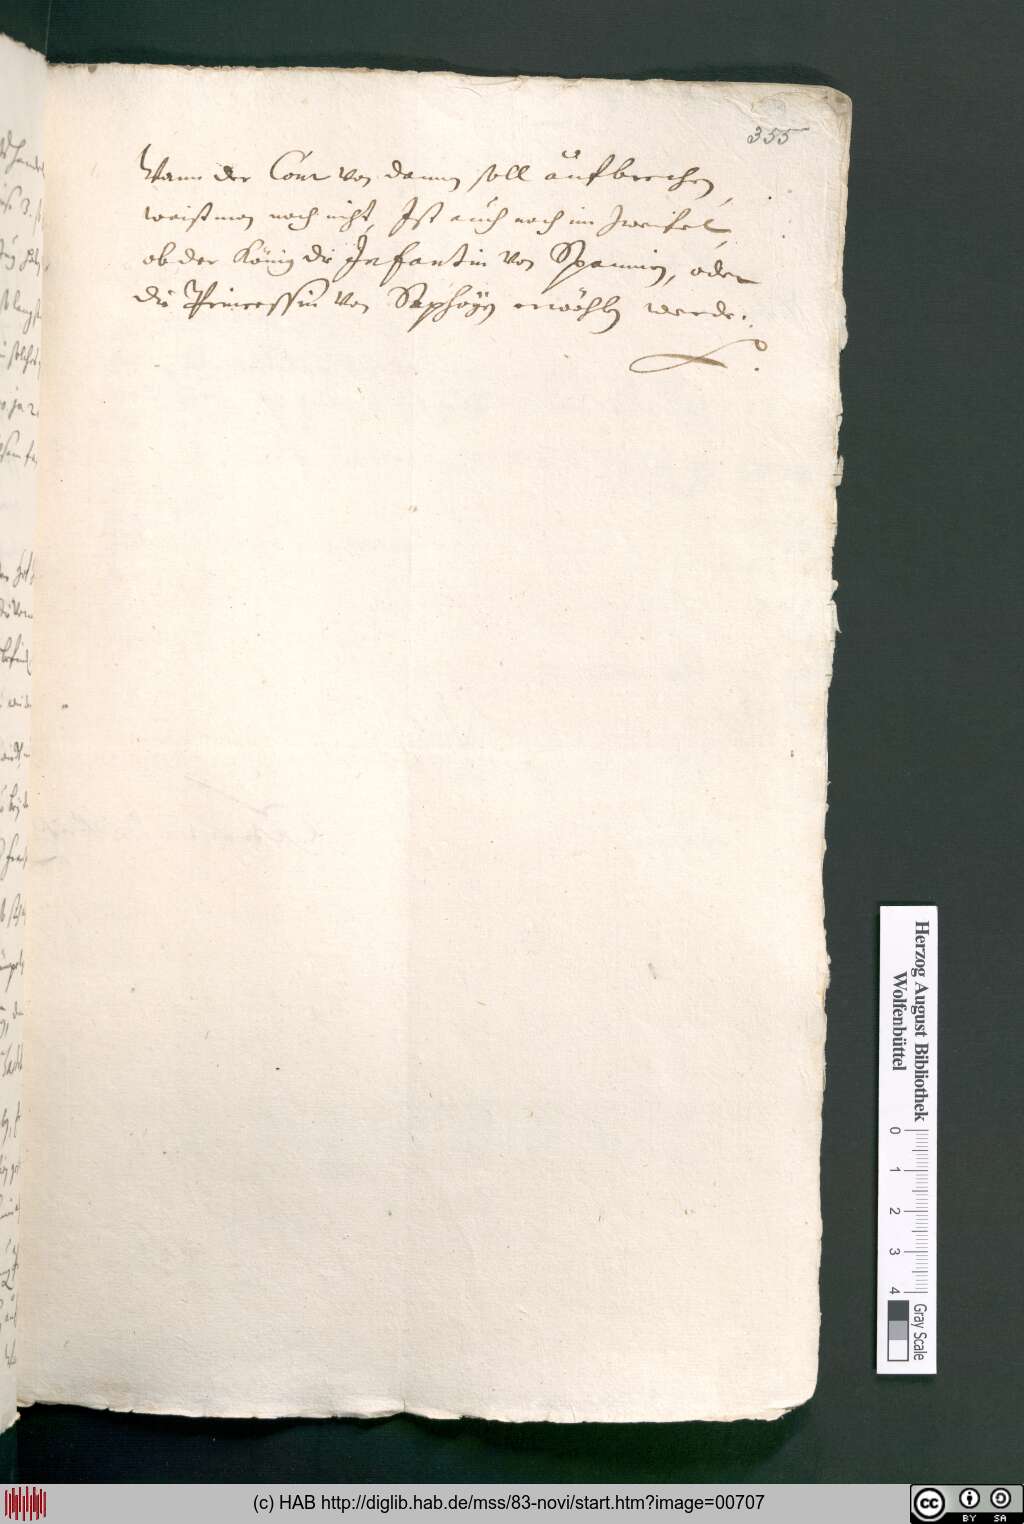 355
Wann der Cour von dannen soll aufbrechen,
weist man noch nicht, Ist auch noch im Zweifel,
ob der König die Infantin von Spannien, oder
die Princessin von Saphoÿen erwöhlen werde.
Herzog August Bibliothek
Wolfenbüttel
0 1 2 3 4
Gray Scale
(c) HAB http://diglib.hab.de/mss/83-novi/start.htm?image=00707
cc BY SA